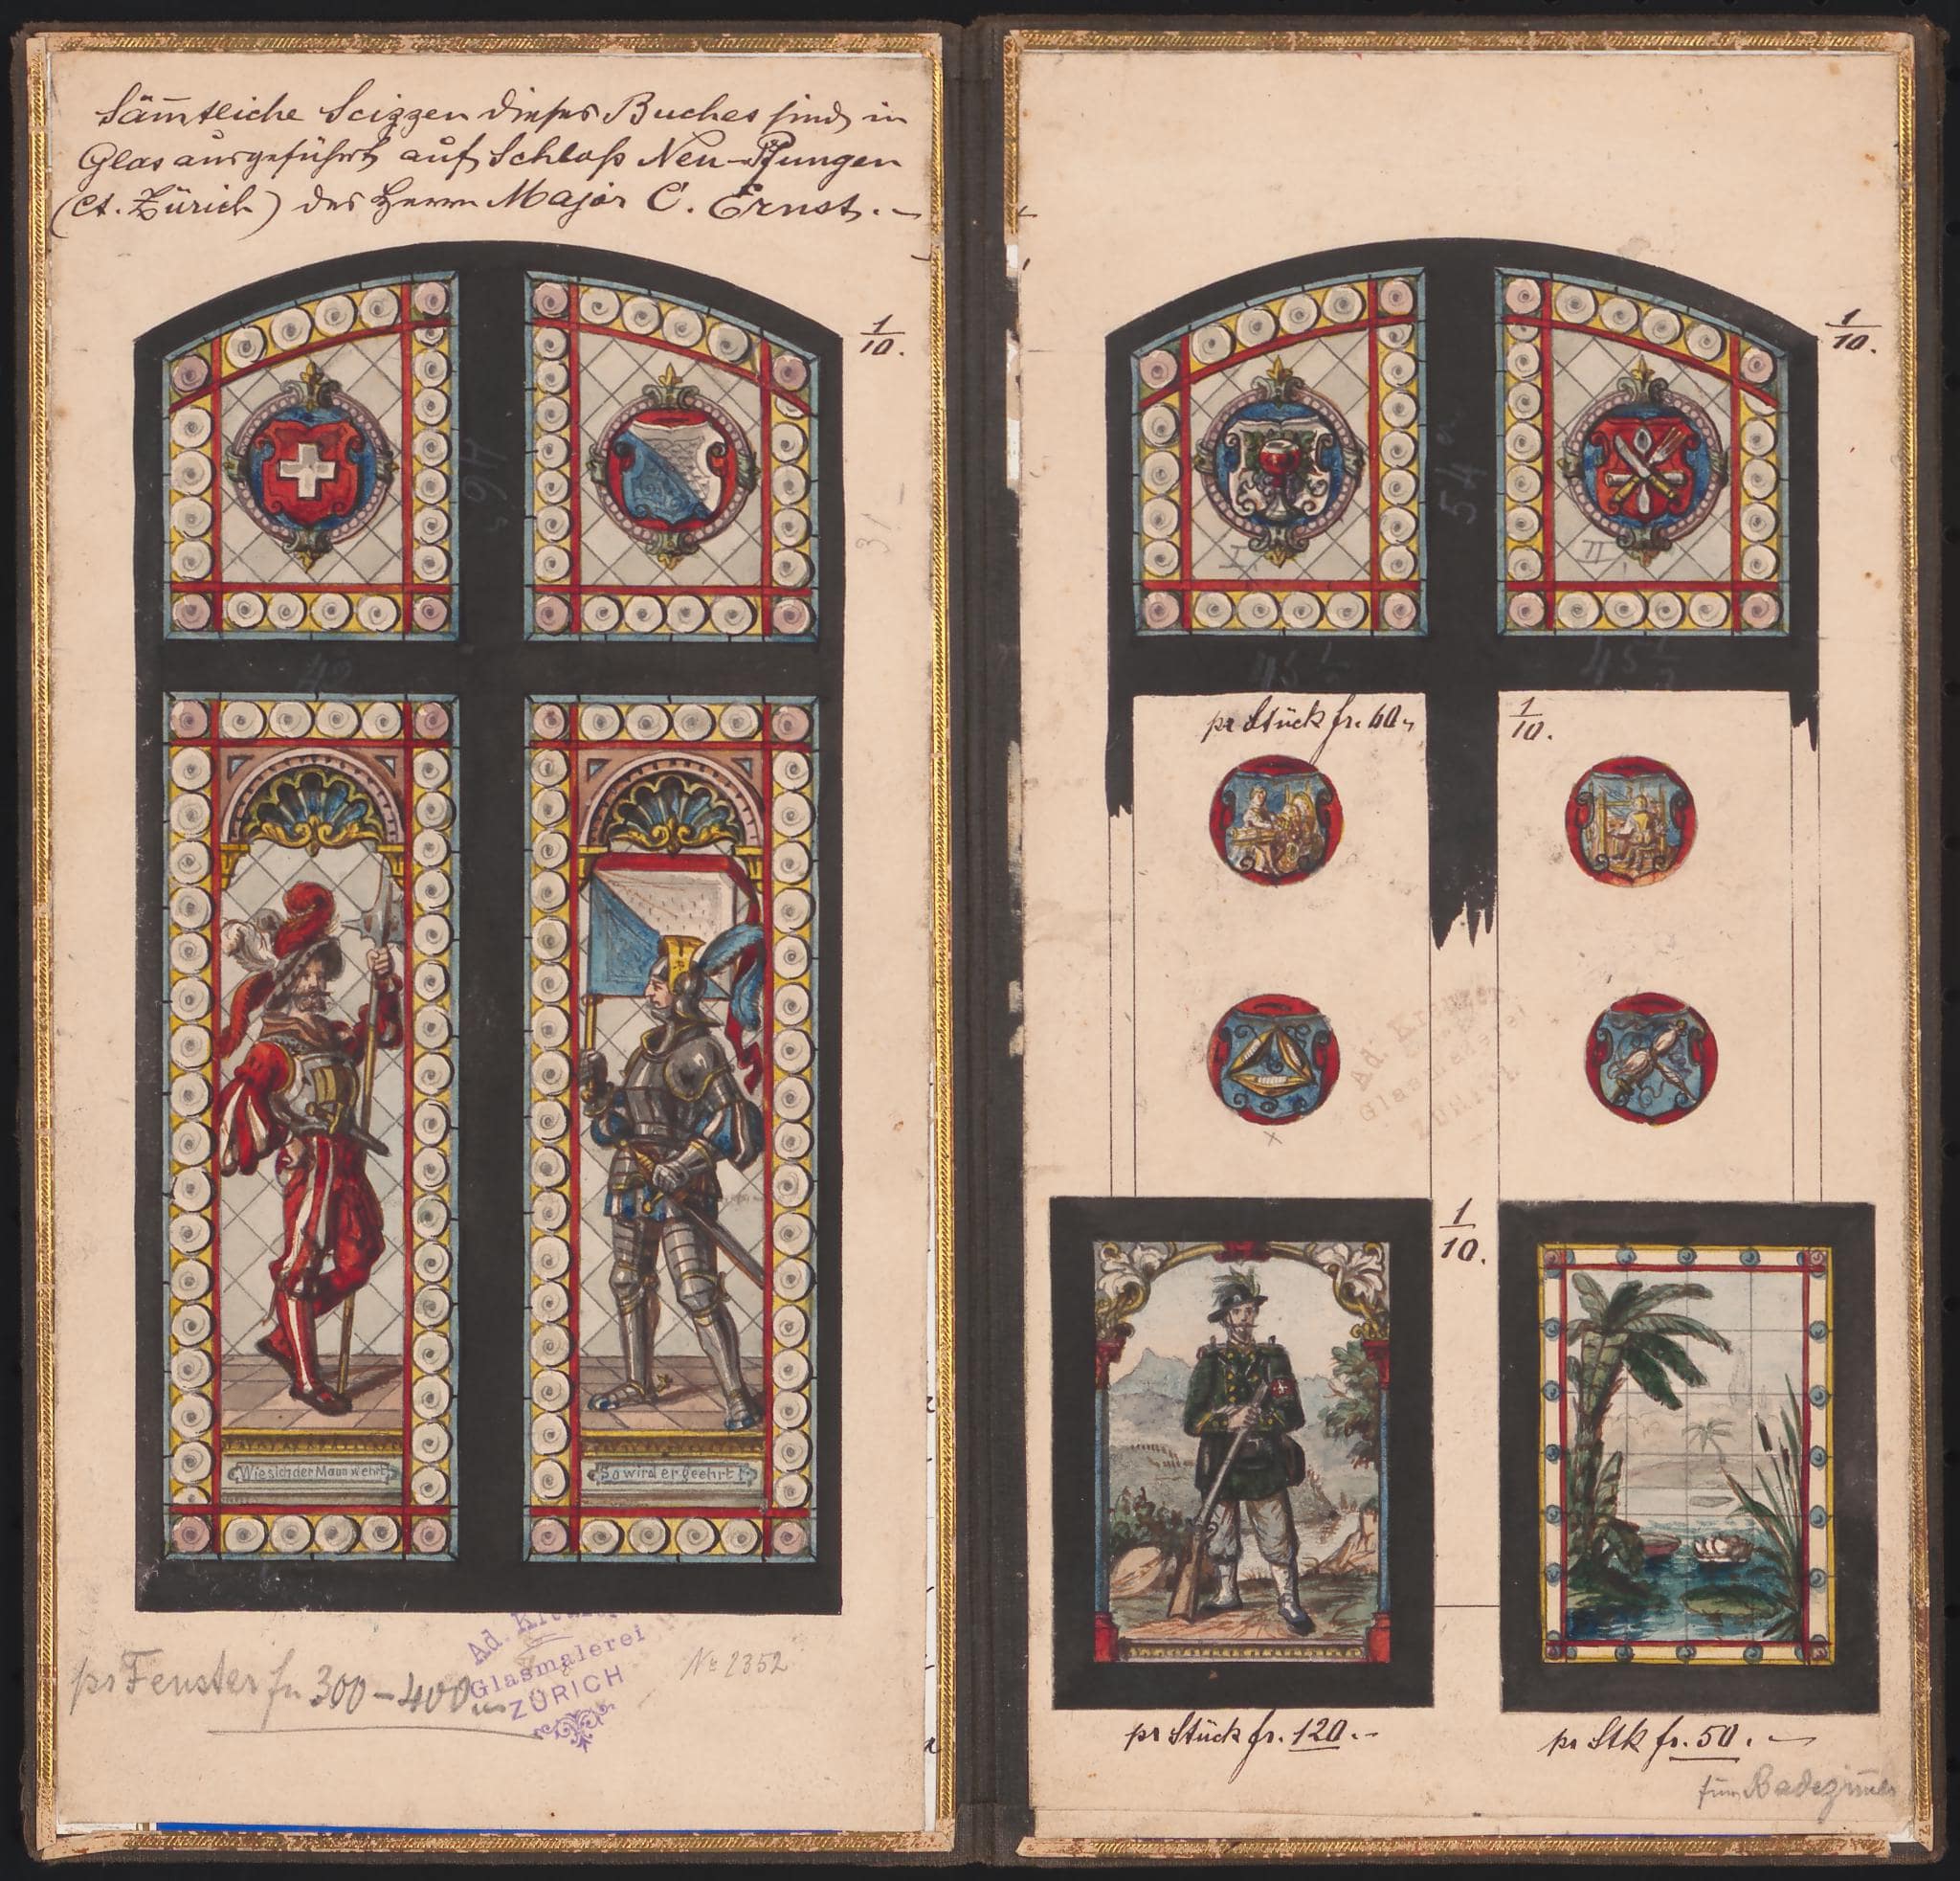 Sämtliche Scizzen dieses Buches sind in
Glas ausgeführt auf Schloß Neu-Pfungen
(Ct. Zürich) des Herrn Major C. Ernst. –
1/10.
46
31
43
Wie sich der Mann wehrt
So wird er geehrt!
pr Fenster fr 300 – 400
Ad.
Glasmalerei
ZÜRICH
No 2352
1/10.
54
I
II
45 1/2
45 1/2
pr Stück fr. 60
1/10.
Ad. Kreuzer
Glasmalerei
Zürich
1/10.
pr Stück fr. 120. –
pr Stk fr. 50. –
für Badezimer